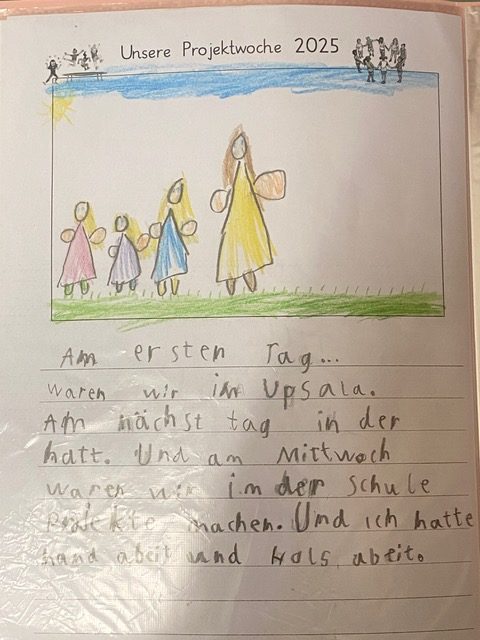 Unsere Projektwoche 2025
Am ersten Tag...
waren wir in Upsala.
Am nächst tag in der
hatt. Und am Mittwoch
waren wir in der Schule
Projekte machen. Und ich hatte
hand abeit und Hols abeit.